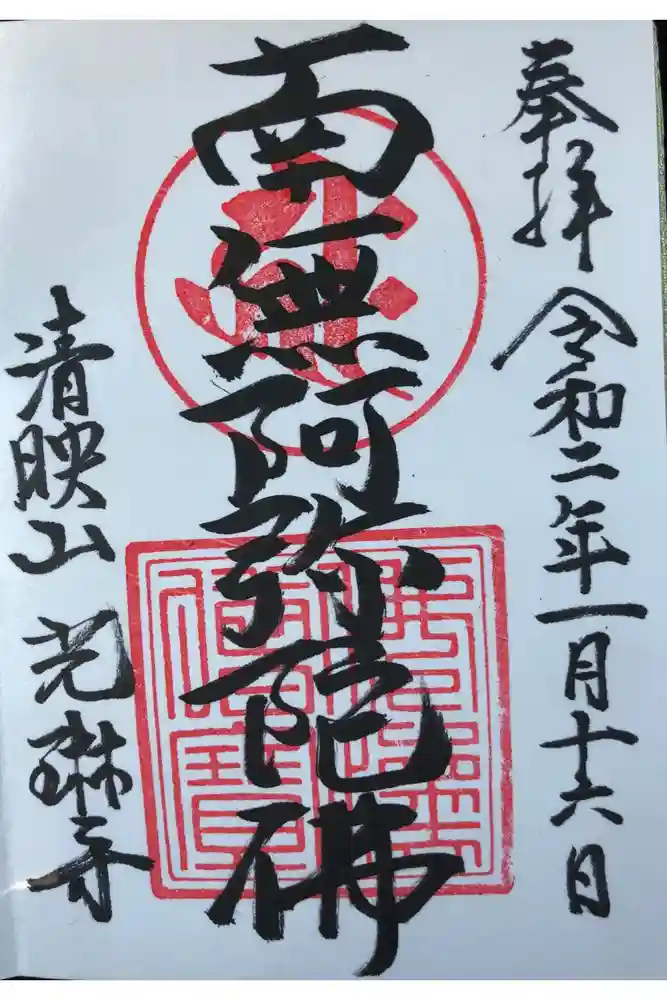 奉拝
令和二年一月十六日
南無阿弥陀佛
清映山
光琳寺